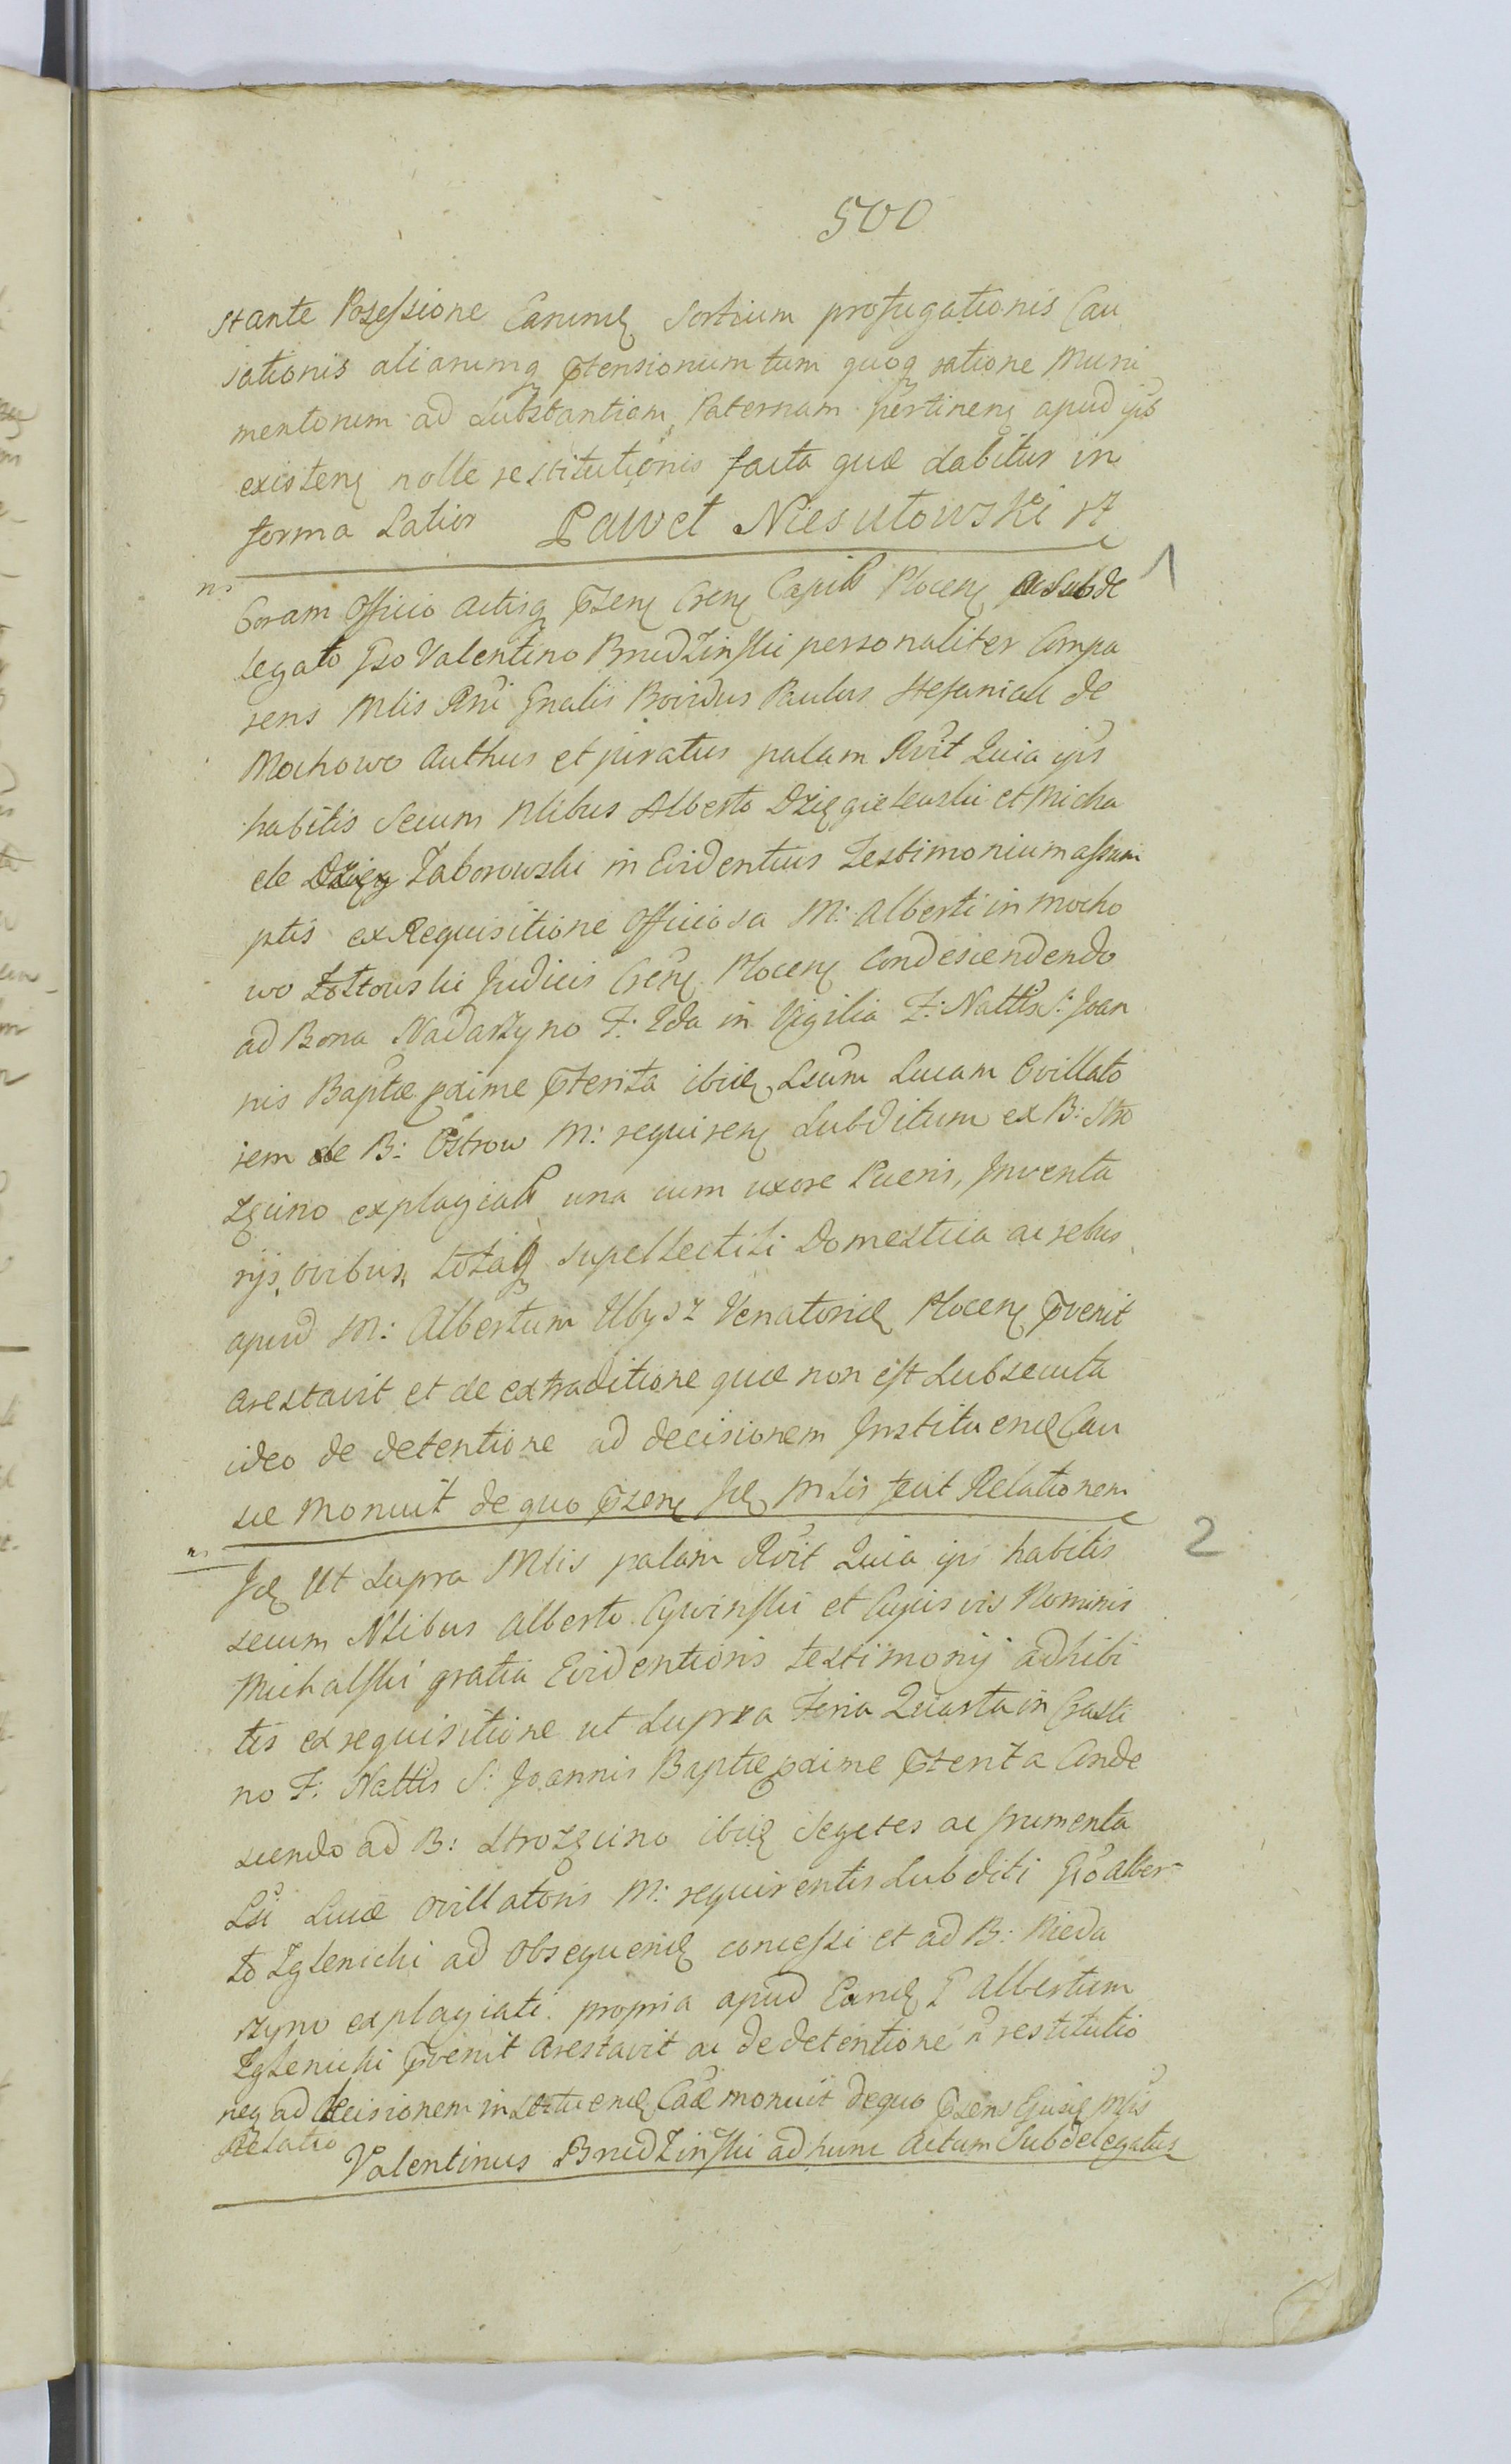 500
stante Possessione Earumq sortium profugationis Cau
sationis aliarumq ptensionum tum quoq ratione Muni
mentorum ad substantiam Paternam pertinen apud ips
existen nolle restitutionis facta quæ dabitur in
forma Latior Paweł Niesułowski
ns
Coram Officio actisq psen Cren Capit Plocen ac Subde
legato Gso Valentino Brudzinski personaliter Compa
rens Mlis Rni Gnalis Providus Paulus Stefaniak de
Mochowo Authus et juratus palam Rvit Quia ips
habitis secum Nlibus Alberto Dzięgielewski et Micha
ele Zaborowski in Evidentius Testimonium assum
ptis ex Requisitione Officiosa M: Alberti in Mocho
wo Żółtowski Judicis Cren Plocen Condescendendo
ad Bona Nadarzyno F: 2da in Vigilia F: Nattis S: Joan
nis Baptæ pxime pterita ibiq Lsum Lucam Ovillato
rem de B: Ostrow M: requiren subditum ex B: Stro
zęcino explagiat una cum uxore Pueris, Inventa
rijs, ovibus, totaq supellectili Domestica ac rebus
apud M: Albertum Ubysz Venatorid Plocen pvenit
arestavit et de extraditione quæ non est subsecuta
ideo de detentione ad decisionem Instituend Cau
sæ monuit de quo psen Id Mlis fecit Relationem
1
ns
Id Ut supra Mlis palam Rvit Quia ips habitis
secum Nlibus Alberto Cywinski et Cujusvis Nominis
Michalski gratia Evidentioris testimonij adhibi
tis ex requisitione ut supra Feria Quarta in Crasti
no F: Nattis S: Joannis Baptæ pxime pterita Conde
scendo ad B: Strozęcino ibiq segetes ac frumenta
Lsi Lucæ Ovillatoris M: requirentis subditi Gso Alber
to Zglenicki ad obsequend concessi et ad B: Nieda
rzyno explagiati propria apud Eand G Albertum
Zglenicki pvenit arestavit ac de detentione n restitutio
neq ad decisionem instituend Cæ monuit de quo psens Ejusd Mlis
Relatio
Valentinus Brudzinski ad hunc Actum Subdelegatus
2